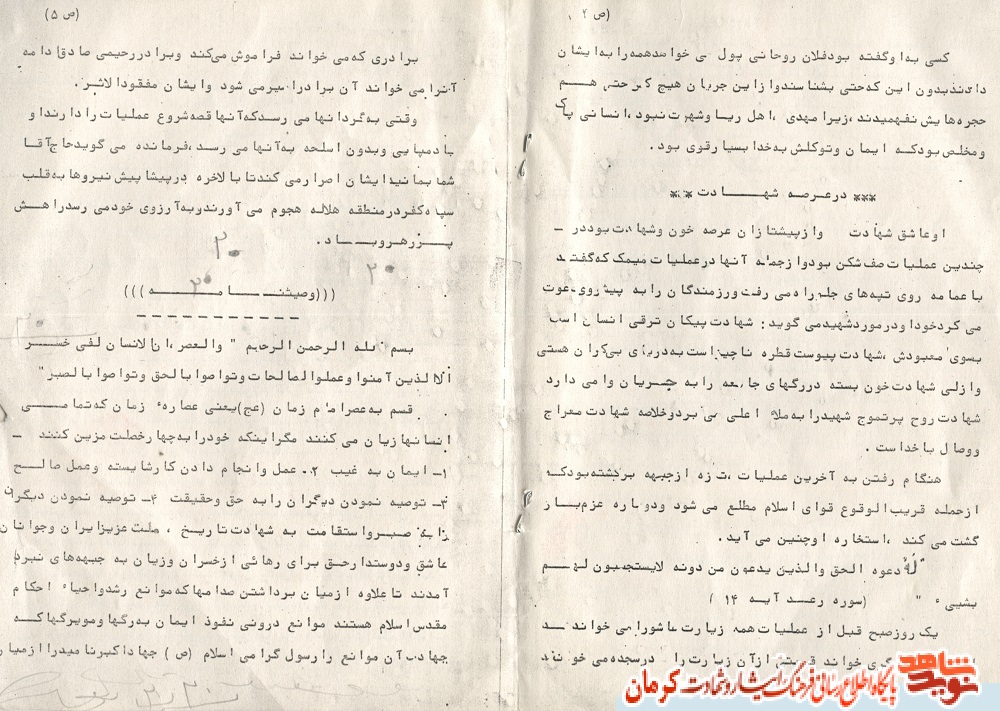 (ص ۴)
کسی به او گفته بود فلان روحانی پول می خواهد همه را به ایشان
دادند بدون این که حتی بشناسند و از این جریان هیچ کس حتی هم
حجره هایش نفهمیدند ، زیرا مهدی ، اهل ریا و شهرت نبود ، انسانی پاک
و مخلص بود که ایمان و توکلش به خدا بسیار قوی بود .
*** در عرصه شهادت ***
او عاشق شهادت و از پیشتازان عرصه خون و شهادت بود در -
چندین عملیات صف شکن بود و از جمله آنها در عملیات میمک که گفتند
با عمامه روی تپه های جلو راه می رفت و رزمندگان را به پیشروی دعوت
می کرد خود او در مورد شهید می گوید : شهادت پیکان ترقی انسان است
بسوی معبودش ، شهادت پیوست قطره ناچیز است به دریای بی کران هستی
و ازلی شهادت خون بسته در رگهای جامعه را به جریان وا می دارد
شهادت روح پر تموج شهید را به ملاء اعلی می برد و خلاصه شهادت معراج
و وصال با خداست .
هنگام رفتن به آخرین عملیات ، تازه از جبهه برگشته بود که
از حمله قریب الوقوع قوای اسلام مطلع می شود و دوباره عزم باز
گشت می کند ، استخاره او چنین می آید .
"له دعوه الحق والذین یدعون من دونه لایستجیبون لهم
بشییء " (سوره رعد آیه ۱۴ )
یک روز صبح قبل از عملیات همه زیارت عاشورا می خواندند
گری خواند قسمتی از آن زیارت را در سجده می خوانند
(ص ۵)
برادری که می خواند فراموش می کند و برادر رحیمی صادق ادامه
آنرا می خواند آن برادر اسیر می شود و ایشان مفقود الاثر .
وقتی به گردانها می رسد که آنها قصد شروع عملیات را دارند او
با دمپایی و بدون اسلحه به آنها می رسد ، فرمانده می گوید حاج آقا
شما بمانید ایشان اصرار می کند تا بالاخره در پیشاپیش نیروها به قلب
سپاه کفر در منطقه هلاله هجوم می آورند و به آرزوی خود می رسد راهش
پر رهرو باد .
۲۰
۲۰
۲۰
(((وصیتنامه)))
بسم الله الرحمن الرحیم " والعصر ، ان الانسان لفی خسر
الا الذین آمنوا وعملوا لصالحات وتواصوا بالحق وتواصوا بالصبر "
قسم به عصر امام زمان (عج) یعنی عصاره زمان که تمامی
انسانها زیان می کنند مگر اینکه خود را به چهار خصلت مزین کنند -
۱- ایمان به غیب ۲- عمل و انجام دادن کار شایسته و عمل صالح
۳- توصیه نمودن دیگران را به حق و حقیقت ۴- توصیه نمودن دیگران
را به صبر و استقامت به شهادت تاریخ ، ملت عزیز ایران و جوانان
عاشق و دوستدار حق برای رهائی از خسران و زیان به جبهه های نبرد
آمدند تا علاوه از میان برداشتن صدامها که موانع رشد و احیاء احکام
مقدس اسلام هستند موانع درونی نفوذ ایمان به رگها و مویرگها که
جهاد با آن موانع را رسول گرامی اسلام (ص) جهاد اکبر نامید را از میان
نوید شاهد
پایگاه اطلاع رسانی فرهنگ ایثار و شهادت کرمان